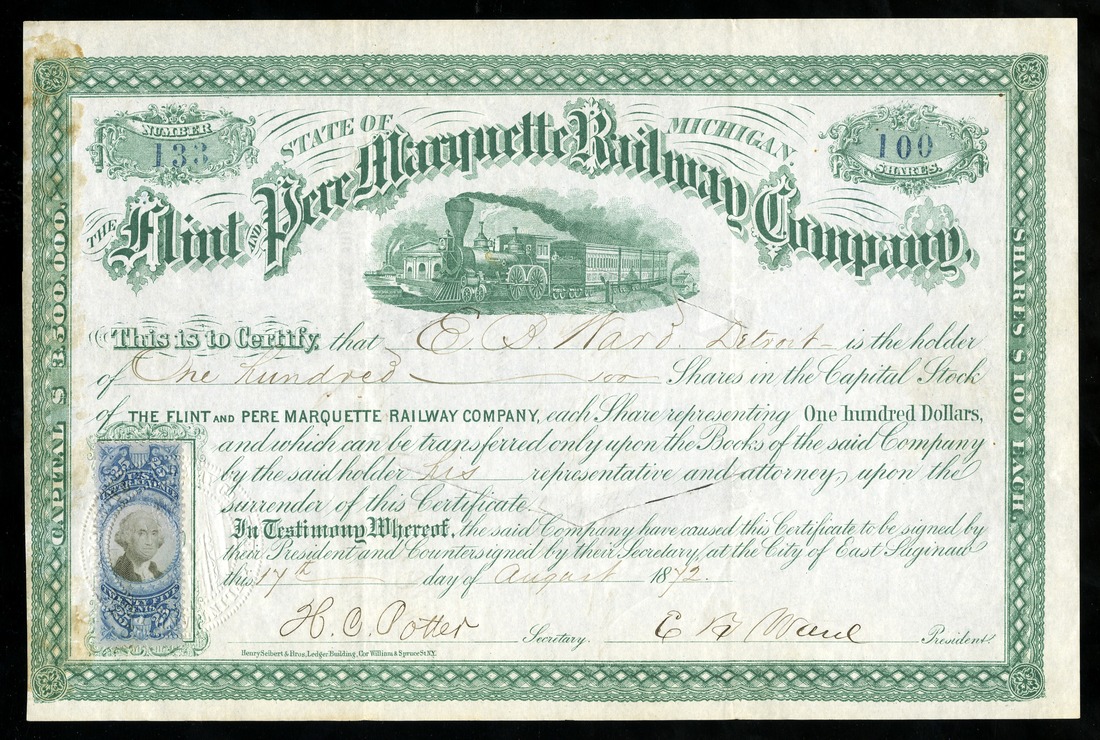 NUMBER
133
STATE OF MICHIGAN.
100
SHARES.
THE Flint AND Pere Marquette Railway Company,
CAPITAL $ 3,500,000.
SHARES $100 EACH.
This is to Certify, that E. B Ward. Detroit is the holder
of One hundred 100 Shares in the Capital Stock
of THE FLINT AND PERE MARQUETTE RAILWAY COMPANY, each Share representing One hundred Dollars,
and which can be transferred only upon the Books of the said Company
by the said holder his representative and attorney, upon the
surrender of this Certificate.
In Testimony Whereof, the said Company have caused this Certificate to be signed by
their President and Countersigned by their Secretary, at the City of East Saginaw
this 17th day of August 1872.
H. C. Potter Secretary. E B Ward President.
Henry Seibert & Bros, Ledger Building, Cor William & Spruce St N.Y.
25 25
TWENTY FIVE
CENTS
25 25